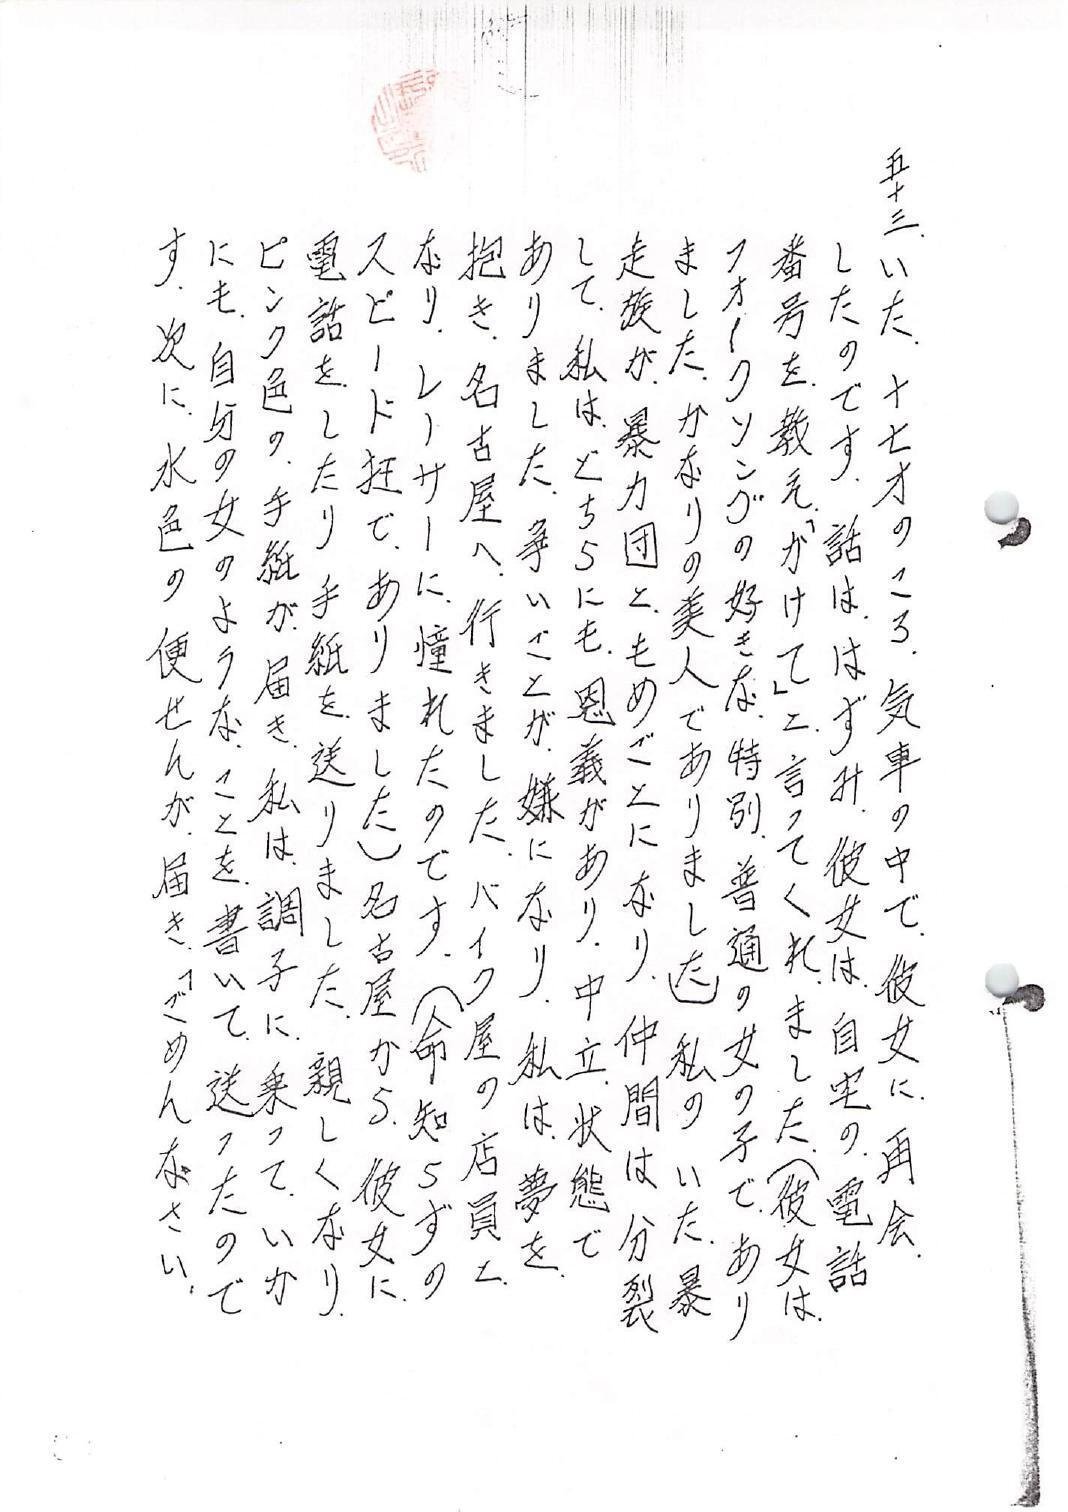 五十三、いた、十七才のころ、気車の中で、彼女に、再会、
したのです、話は、はずみ、彼女は、自宅の、電話
番号を、教え、「かけて」と、言ってくれ、ました、(彼女は、
フォークソングの好きな、特別、普通の女の子であり
ました、かなりの美人でありました) 私の、いた、暴
走族が、暴力団と、もめごとになり、仲間は分裂
して、私は、どちらにも、恩義があり、中立、状態で
ありました、争いごとが、嫌になり、私は、夢を、
抱き、名古屋へ、行きました、バイク屋の店員と、
なり、レーサーに、憧れたのです、(命知らずの
スピード狂で、ありました)名古屋から、彼女に、
電話を、したり、手紙を、送りました、親しくなり、
ピンク色の、手紙が、届き、私は、調子に、乗って、いか
にも、自分の女のような、ことを、書いて、送ったので
す、次に、水色の、便せんが、届き、「ごめんなさい、